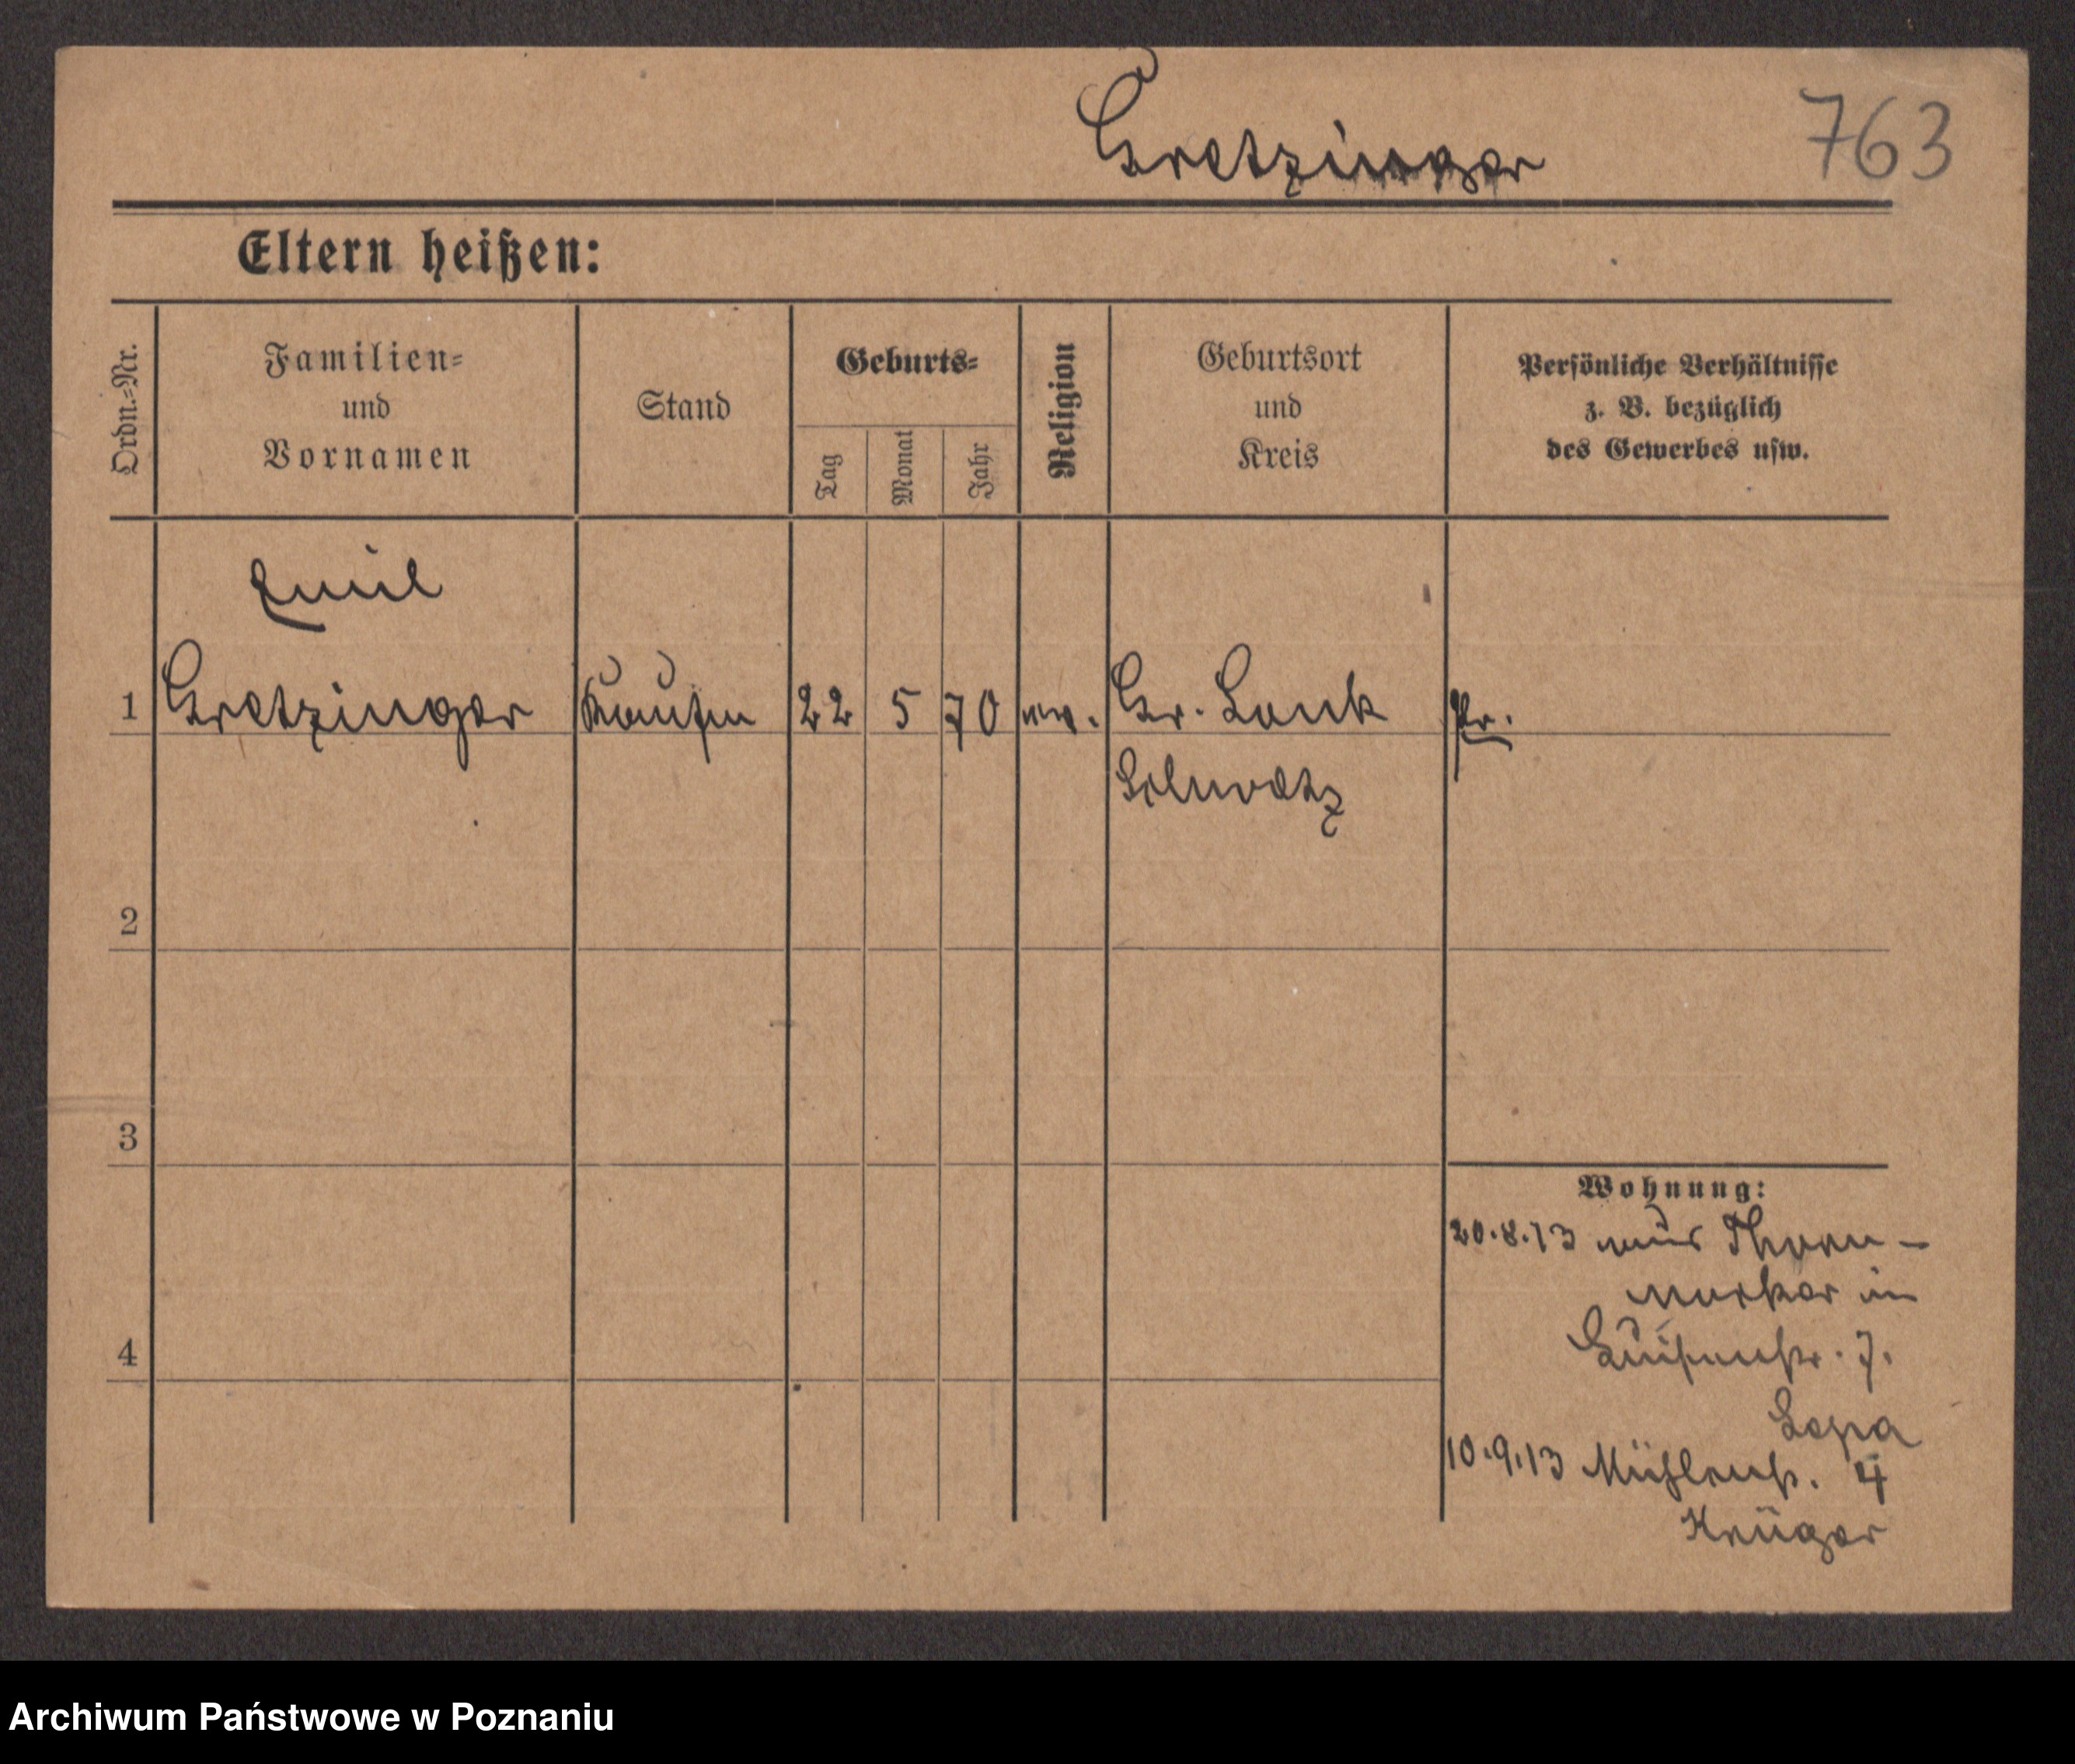 Gretzinger 763
Eltern heißen:
Ordn.=Nr.
Familien=
und
Vornamen
Stand
Geburts=
Tag
Monat
Jahr
Religion
Geburtsort
und
Kreis
Persönliche Verhältnisse
z. B. bezüglich
des Gewerbes usw.
Emil
1 Gretzinger Kaufm 22 5 70 ev. Gr. Lonk Pr.
Schwetz
2
3
4
Wohnung:
20.8.13 aus Thorn-
Mocker in
Luisenstr. 7.
10.9.13 Mühlenstr. 4
Krüger
Archiwum Państwowe w Poznaniu